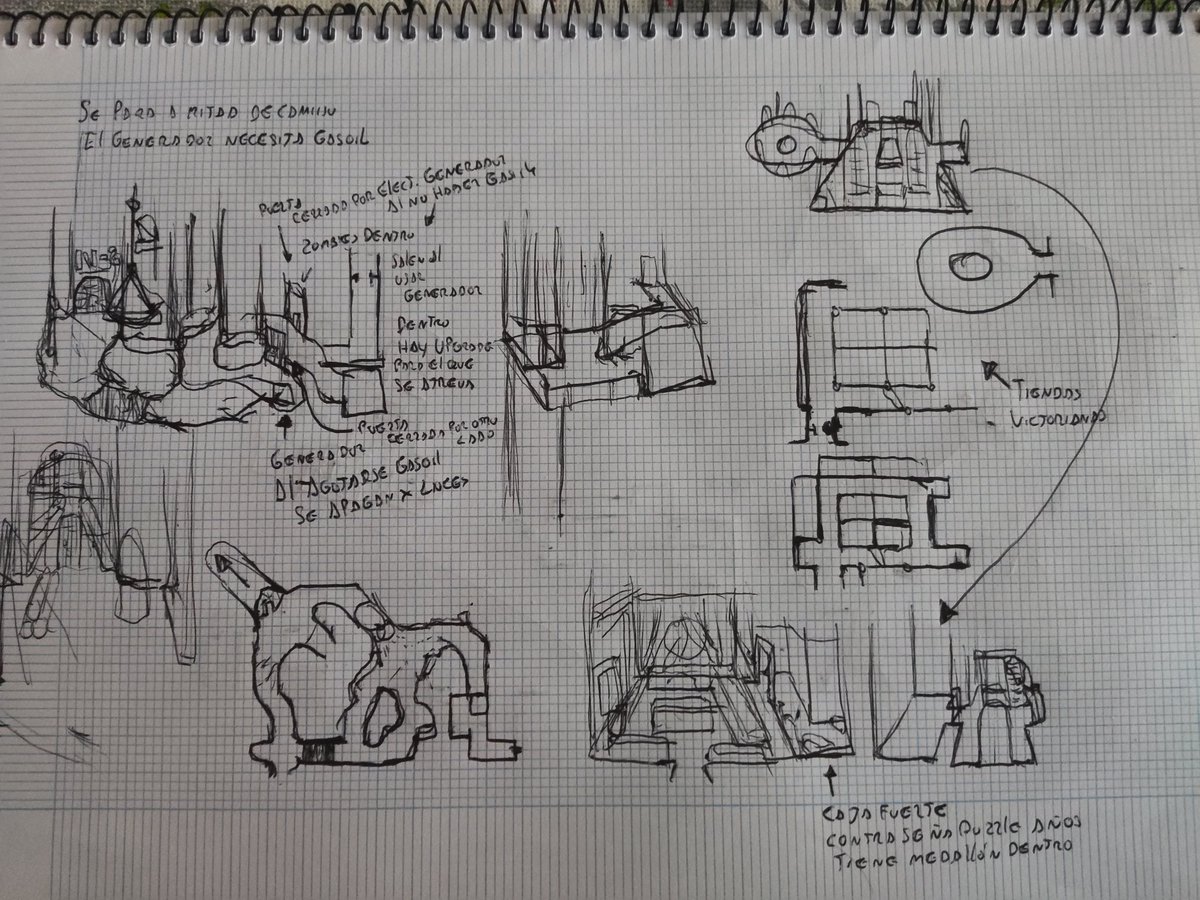 SE PARA A MITAD DE CAMINO
EL GENERADOR NECESITA GASOIL
PUERTA
CERRADA POR ELECT. GENERADOR
AL NO HABER GASOIL
ZOMBIES DENTRO
SALEN AL
USAR
GENERADOR
DENTRO
HAY UPGRADE
PARA EL QUE
SE ATREVA
PUERTA
CERRADA POR OTRO
LADO
GENERADOR
AL AGOTARSE GASOIL
SE APAGAN LUCES
TIENDAS
VICTORIANAS
CAJA FUERTE
CONTRASEÑA PUZZLE AÑOS
TIENE MEDALLÓN DENTRO